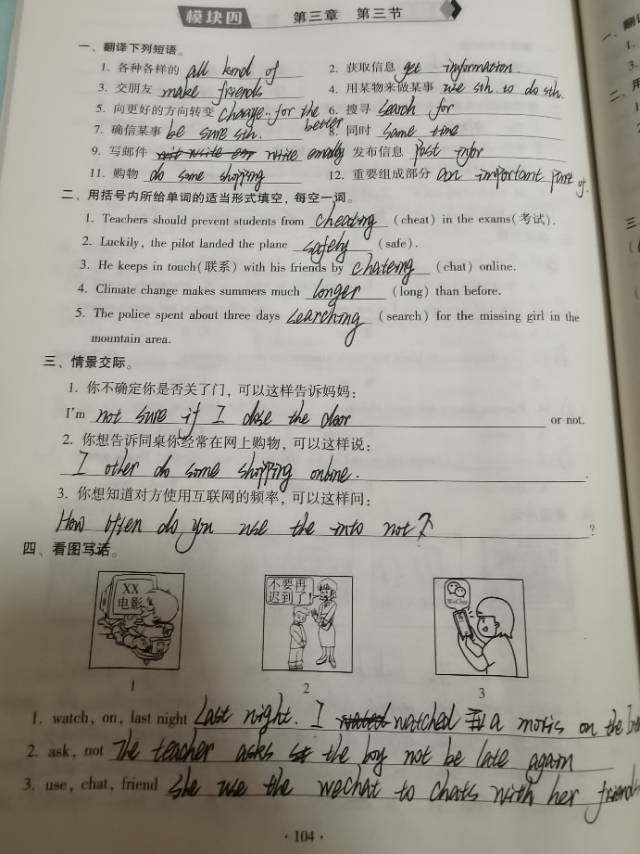 模块四 第三章 第三节
一、翻译下列短语。
1. 各种各样的 all kind of 2. 获取信息 get information
3. 交朋友 make friends 4. 用某物来做某事 use sth. to do sth.
5. 向更好的方向转变 change for the better 6. 搜寻 search for
7. 确信某事 be sure sth. 8. 同时 same time
9. 写邮件 write 发布信息 post infor
11. 购物 do some shopping 12. 重要组成部分 an important part of
二、用括号内所给单词的适当形式填空，每空一词。
1. Teachers should prevent students from cheating (cheat) in the exams(考试).
2. Luckily, the pilot landed the plane safely (safe).
3. He keeps in touch(联系) with his friends by chateing (chat) online.
4. Climate change makes summers much longer (long) than before.
5. The police spent about three days searching (search) for the missing girl in the
mountain area.
三、情景交际。
1. 你不确定你是否关了门，可以这样告诉妈妈：
I'm not sure if I close the door or not.
2. 你想告诉同桌你经常在网上购物，可以这样说：
I do some shopping online.
3. 你想知道对方使用互联网的频率，可以这样问：
How often do you use the into not? ?
四、看图写话。
XX
电影
不要再
迟到了!
WeChat
1 2 3
1. watch, on, last night Last night. I watched a on the
2. ask, not The teacher asks the boy not be late again
3. use, chat, friend She use the wechat to chats with her friends
· 104 ·